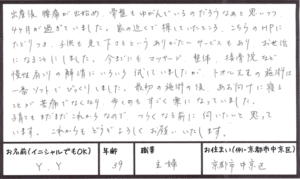 出産後 腰痛が出始め、骨盤もゆがんでいるのだろうなぁと思いつつ
4ヶ月が過ぎていました。家の近くで探していたところ、こちらのHPに
たどりつき、子供も見て下さるというありがたいサービスもあり お世話
になることにしました。今までにもマッサージ、整体、接骨院など
慢性肩こりの解消にいろいろ試していましたが、トオル先生の施術は
一番ソフトでびっくりしました。最初の施術の後、あお向けに寝る
ことが苦痛でなくなり、歩くのもすごく楽になっていました。
子育てもまだまだこれからなので、つらくなる前に伺いたいと思って
います。これからもどうぞよろしくお願いいたします。
お名前(イニシャルでもOK)
年齢
職業
お住まい(例:京都市中京区)
Y.Y
39
主婦
京都市中京区